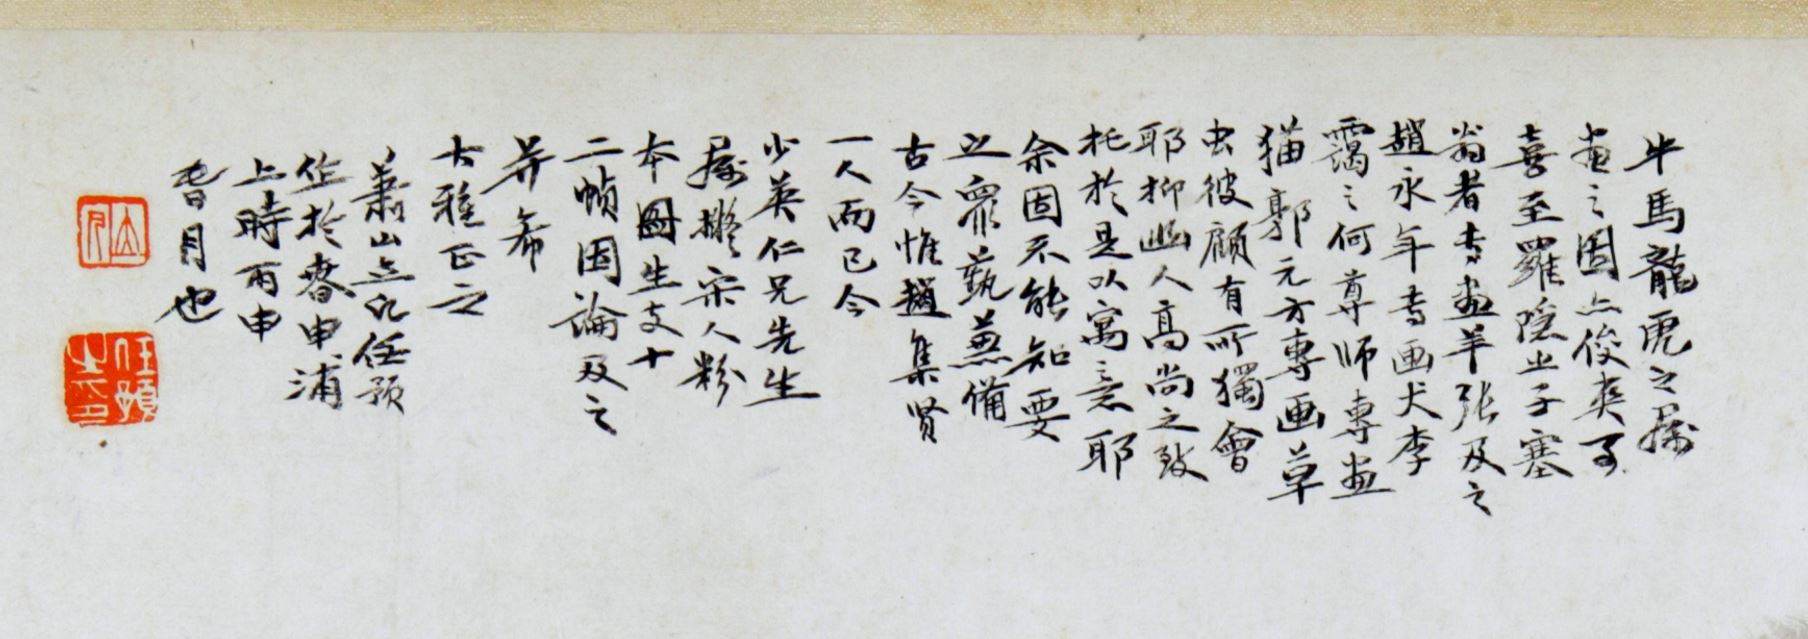 牛馬龍虎之属
画之固亦俊爽可
喜至羅隱之子塞
翁者专畫羊張及之
趙永年専画犬李
靄之何尊師專畫
猫郭元方專画草
虫彼顧有所獨會
耶抑幽人高尚之致
托於是以寓意耶
余固不能知要
之衆藝兼備
古今惟趙集贤
一人而已今
少英仁兄先生
属擬宋人粉
本圖生支十
二幀因論及之
并希
大雅正之
萧山立凡任预
作於春申浦
上時丙申
耆月也
立凡
任預之印